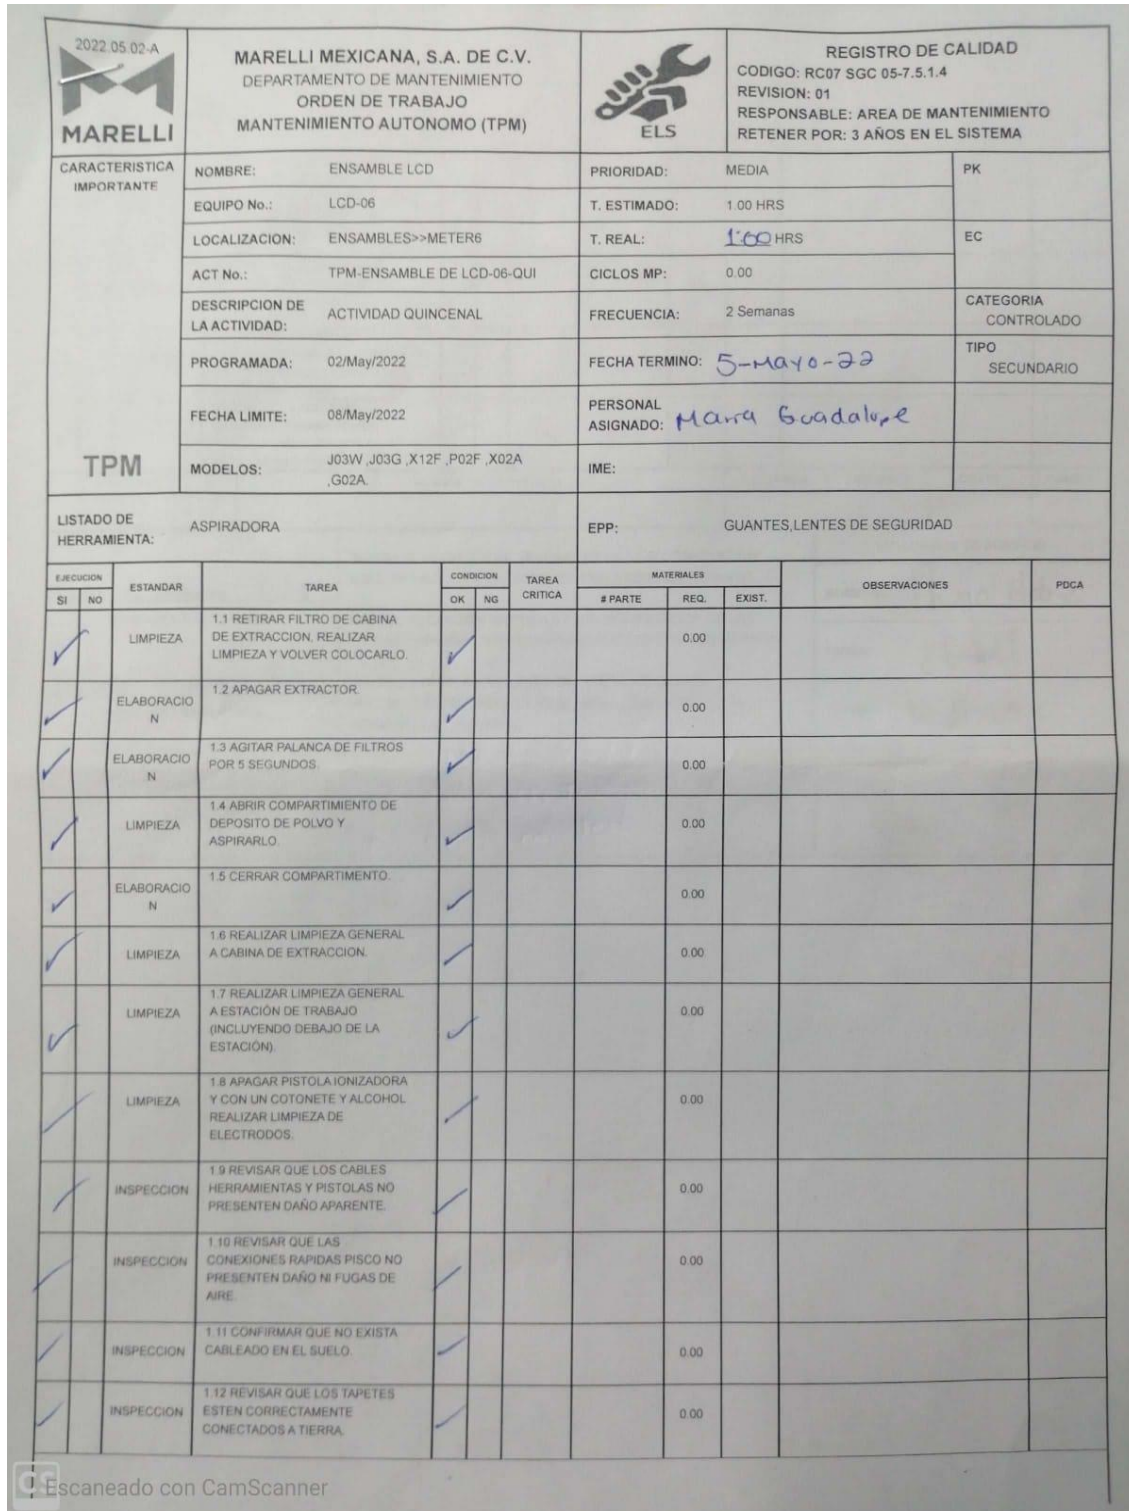 2022.05.02-A
MARELLI
MARELLI MEXICANA, S.A. DE C.V.
DEPARTAMENTO DE MANTENIMIENTO
ORDEN DE TRABAJO
MANTENIMIENTO AUTONOMO (TPM)
ELS
REGISTRO DE CALIDAD
CODIGO: RC07 SGC 05-7.5.1.4
REVISION: 01
RESPONSABLE: AREA DE MANTENIMIENTO
RETENER POR: 3 AÑOS EN EL SISTEMA
CARACTERISTICA
IMPORTANTE
TPM
NOMBRE: ENSAMBLE LCD
PRIORIDAD: MEDIA
PK
EQUIPO No.: LCD-06
T. ESTIMADO: 1.00 HRS
LOCALIZACION: ENSAMBLES>>METER6
T. REAL: 1:00 HRS
EC
ACT No.: TPM-ENSAMBLE DE LCD-06-QUI
CICLOS MP: 0.00
DESCRIPCION DE
LA ACTIVIDAD: ACTIVIDAD QUINCENAL
FRECUENCIA: 2 Semanas
CATEGORIA
CONTROLADO
PROGRAMADA: 02/May/2022
FECHA TERMINO: 5-Mayo-22
TIPO
SECUNDARIO
FECHA LIMITE: 08/May/2022
PERSONAL
ASIGNADO: Maria Guadalupe
MODELOS: J03W ,J03G ,X12F ,P02F ,X02A
,G02A.
IME:
LISTADO DE
HERRAMIENTA: ASPIRADORA
EPP: GUANTES,LENTES DE SEGURIDAD
EJECUCION
SI NO
ESTANDAR
TAREA
CONDICION
OK NG
TAREA
CRITICA
MATERIALES
# PARTE REQ. EXIST.
OBSERVACIONES
PDCA
LIMPIEZA
1.1 RETIRAR FILTRO DE CABINA
DE EXTRACCION, REALIZAR
LIMPIEZA Y VOLVER COLOCARLO.
0.00
ELABORACIO
N
1.2 APAGAR EXTRACTOR.
0.00
ELABORACIO
N
1.3 AGITAR PALANCA DE FILTROS
POR 5 SEGUNDOS.
0.00
LIMPIEZA
1.4 ABRIR COMPARTIMIENTO DE
DEPOSITO DE POLVO Y
ASPIRARLO.
0.00
ELABORACIO
N
1.5 CERRAR COMPARTIMENTO.
0.00
LIMPIEZA
1.6 REALIZAR LIMPIEZA GENERAL
A CABINA DE EXTRACCION.
0.00
LIMPIEZA
1.7 REALIZAR LIMPIEZA GENERAL
A ESTACIÓN DE TRABAJO
(INCLUYENDO DEBAJO DE LA
ESTACIÓN).
0.00
LIMPIEZA
1.8 APAGAR PISTOLA IONIZADORA
Y CON UN COTONETE Y ALCOHOL
REALIZAR LIMPIEZA DE
ELECTRODOS.
0.00
INSPECCION
1.9 REVISAR QUE LOS CABLES
HERRAMIENTAS Y PISTOLAS NO
PRESENTEN DAÑO APARENTE.
0.00
INSPECCION
1.10 REVISAR QUE LAS
CONEXIONES RAPIDAS PISCO NO
PRESENTEN DAÑO NI FUGAS DE
AIRE.
0.00
INSPECCION
1.11 CONFIRMAR QUE NO EXISTA
CABLEADO EN EL SUELO.
0.00
INSPECCION
1.12 REVISAR QUE LOS TAPETES
ESTEN CORRECTAMENTE
CONECTADOS A TIERRA.
0.00
CS Escaneado con CamScanner